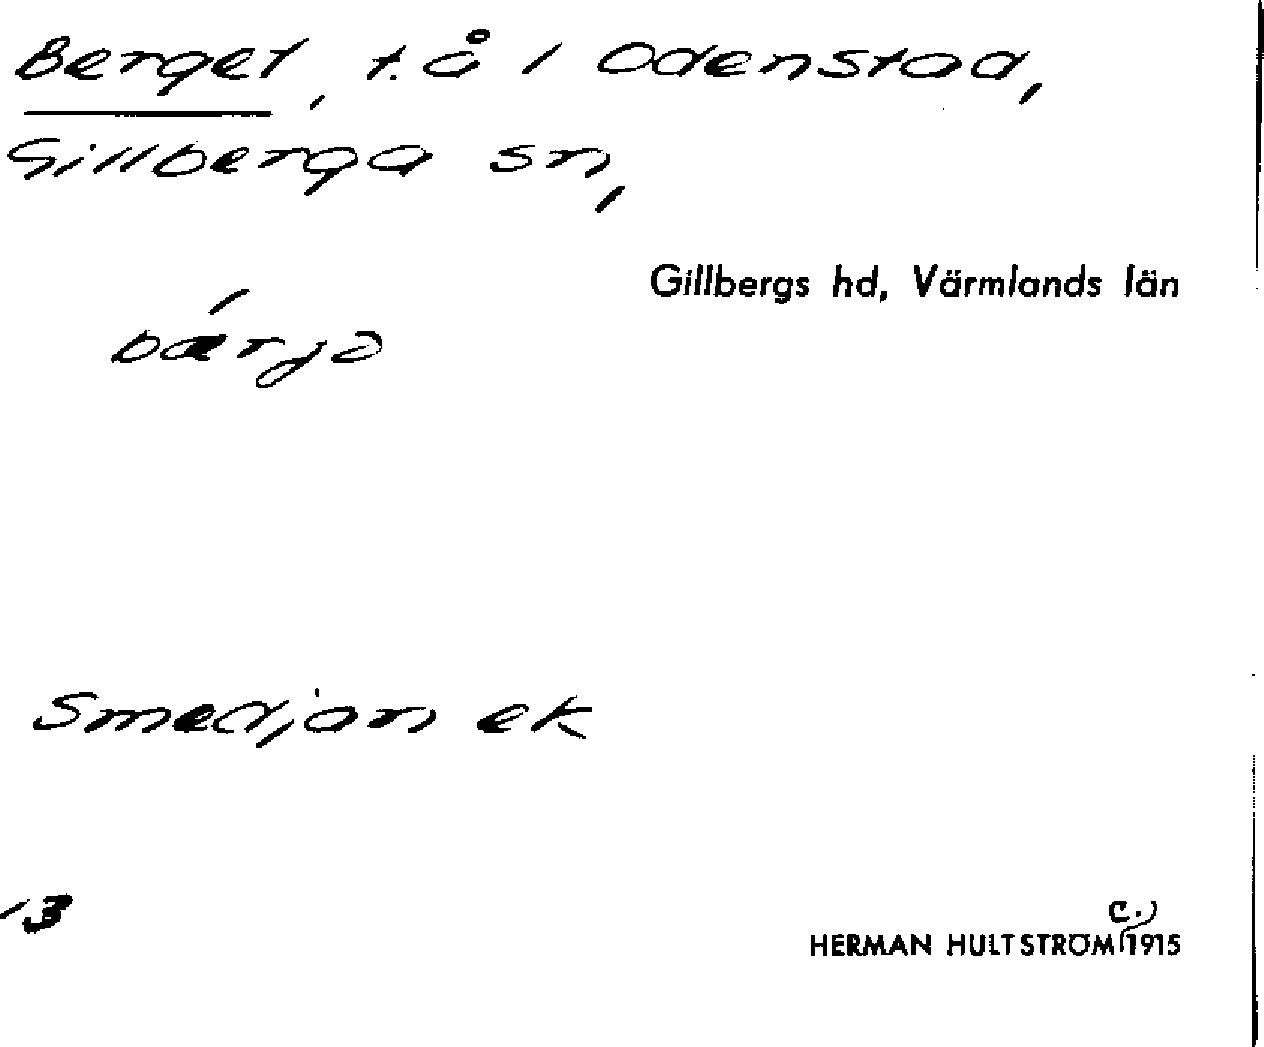 Berget, t. å i Odenstad,
Gillberga sn,
Gillbergs hd, Värmlands län
bærjə
Smedjan ek
13
c.)
HERMAN HULTSTRÖM 1915